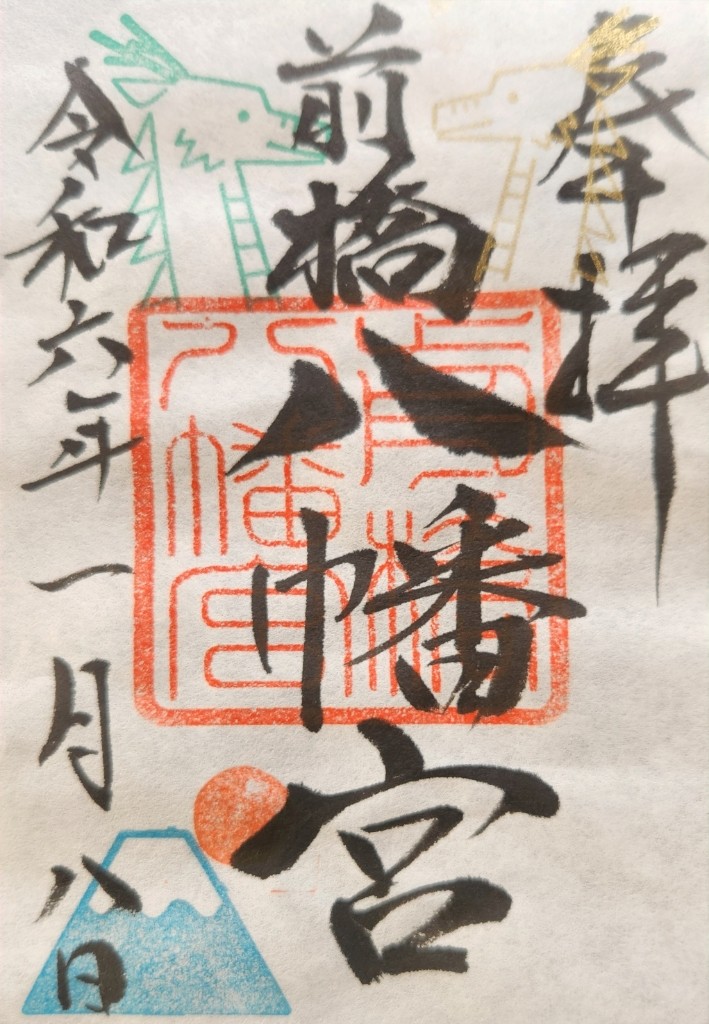 奉拝
前橋八幡宮
前橋八幡宮
令和六年一月八日